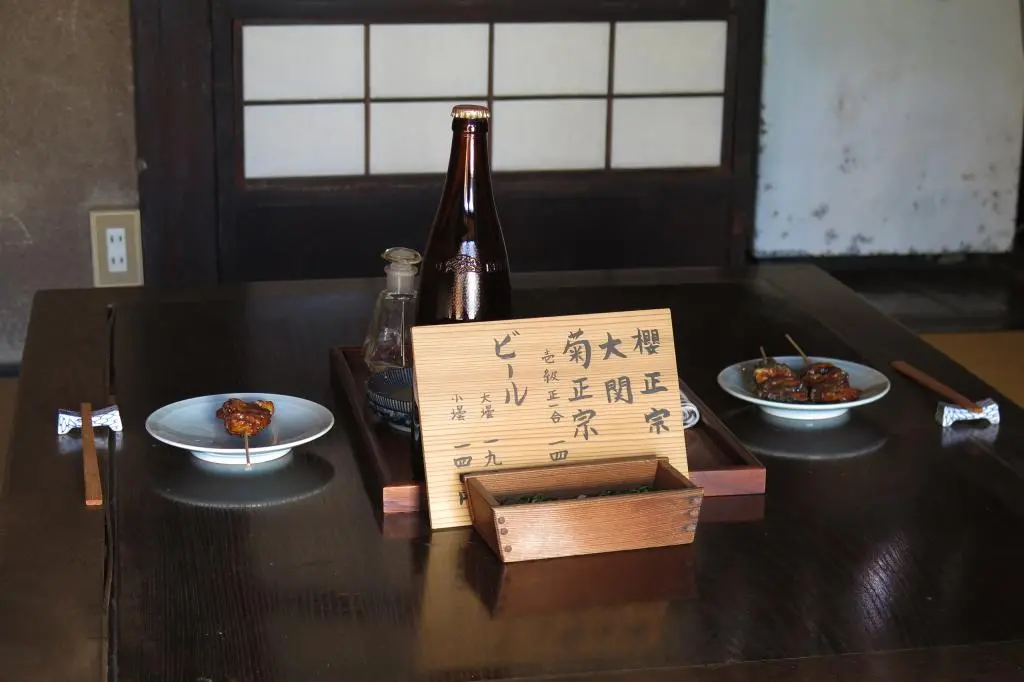 櫻正宗
大関
菊正宗
壱級正一合 一四
ビール
大壜 一九
小壜 一四